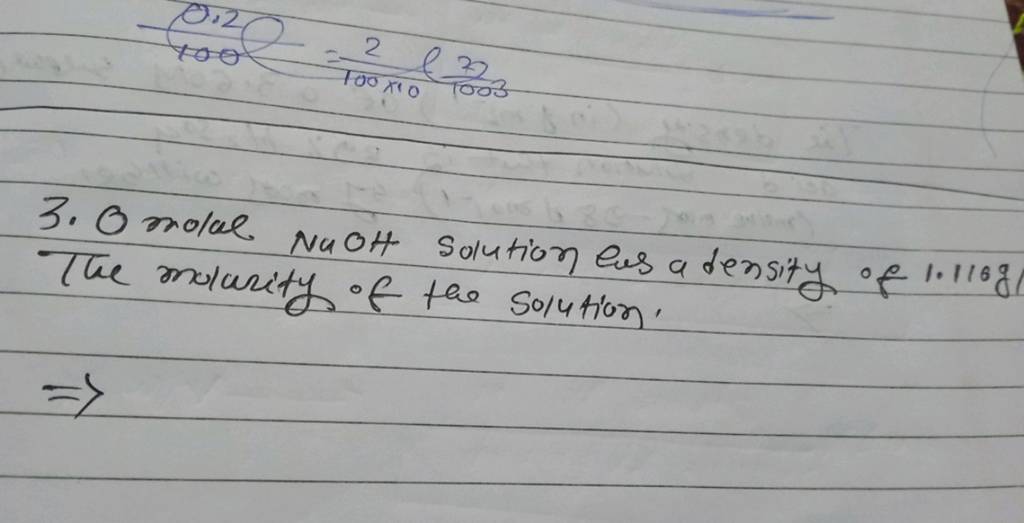 0.2
100
= 2
100×10
72
1003
3.0 molal NaOH solution has a density of 1.110g/
The molarity of the solution.
=>